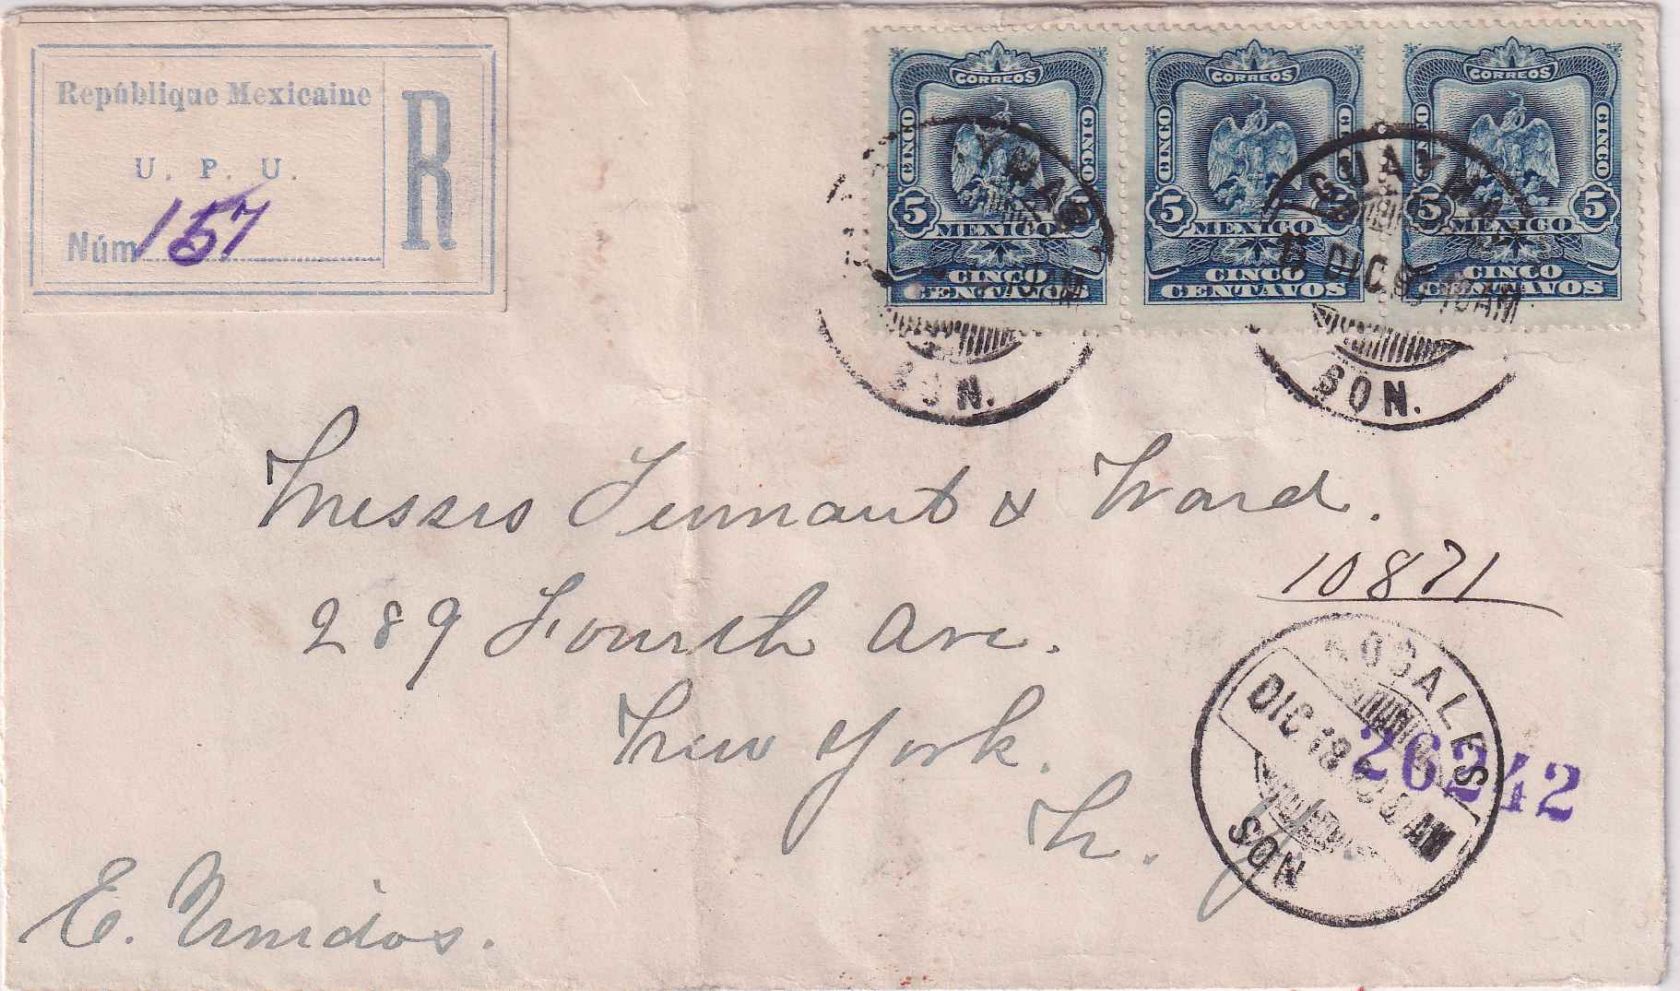 République Mexicaine
U. P. U.
R
Núm 157
CORREOS
CINCO CINCO
5 5
MEXICO
CINCO
CENTAVOS
CORREOS
CINCO CINCO
5 5
MEXICO
CINCO
CENTAVOS
CORREOS
CINCO CINCO
5 5
MEXICO
CINCO
CENTAVOS
SON.
GUAYM
DIC 10AM
SON.
Messrs Tennant & Ward.
289 Fourth Ave.
New York.
N. Y.
E. Unidos.
10871
NOGALES
DIC 18 8 AM
SON
26242